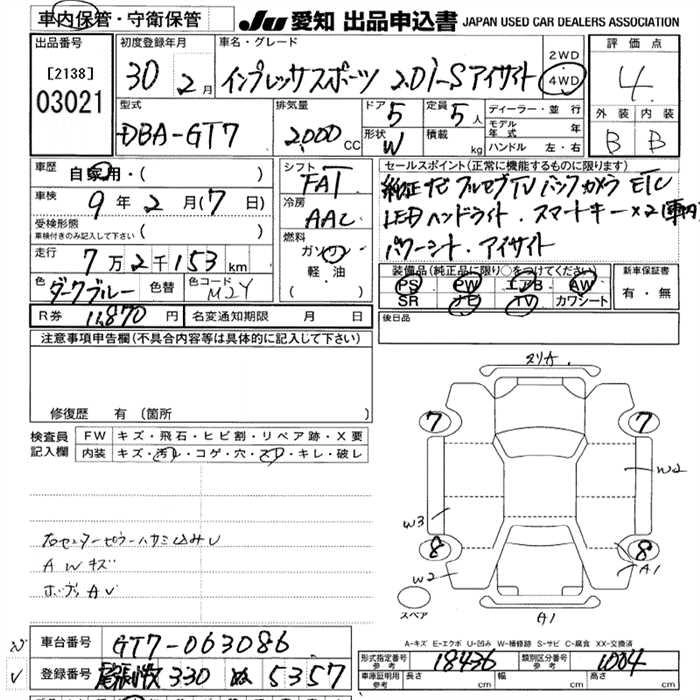 車内保管・守衛保管
JU 愛知 出品申込書 JAPAN USED CAR DEALERS ASSOCIATION
出品番号
[2138]
03021
初度登録年月
30 2月
車名・グレード
インプレッサスポーツ 2.0i-Sアイサイト
2WD
4WD
評価点
4
外装 内装
B B
型式
DBA-GT7
排気量
2,000 CC
ドア
5
形状
W
定員
5人
積載
kg
ディーラー・並行
モデル年式 年
ハンドル 左・右
車歴
自家用・( )
車検
9年2月(7日)
受検形態
車検付きのみ記入して下さい ( )
走行
7万2千153km
色
ダークブルー
色替
色コード
M2Y
シフト
FAT
冷房
AAC
燃料
ガソリン
軽油
( )
セールスポイント(正常に機能するものに限ります)
純正ナビ フルセグTV バックカメラ ETC
LEDヘッドライト・スマートキー×2(車内)
パワーシート・アイサイト
装備品(純正品に限り○をつけてください)
PS PW エアB AW
SR ナビ TV カワシート
新車保証書
有・無
R券 11,870円
名変通知期限 月 日
後日品
注意事項申告欄(不具合内容等は具体的に記入して下さい)
修復歴 有(箇所
検査員記入欄
FW キズ・飛石・ヒビ割・リペア跡・X要
内装 キズ・汚レ・コゲ・穴・スレ・キレ・破レ
右センターピラーハサミ込みU
AWキズ
ボディAU
スリA
7 7
W2
W3
8 8
W2 A1
スペア
A1
A-キズ E-エクボ U-凹み W-補修跡 S-サビ C-腐食 XX-交換済
車台番号 GT7-063086
登録番号 尾張小牧 330 ぬ 5357
形式指定番号 参考 18436
類別区分番号 参考 1004
車庫証明用 参考 長さ cm 幅 cm 高さ cm